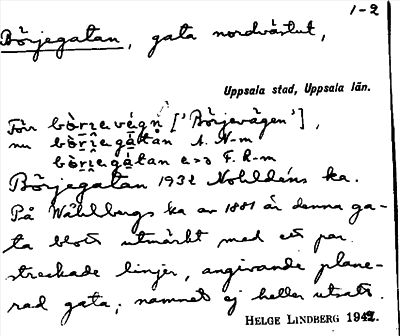 1-2
Börjegatan, gata nordvästut,
Uppsala stad, Uppsala län.
Förr ['Börjevägen'],
nu A. N-m
F. R-m
Börjegatan 1932 Nohldéns ka.
På Wåhlbergs ka av 1881 är denna ga-
ta blott utmärkt med ett par
streckade linjer, angivande plane-
rad gata; namnet ej heller utsatt.
HELGE LINDBERG 1942.